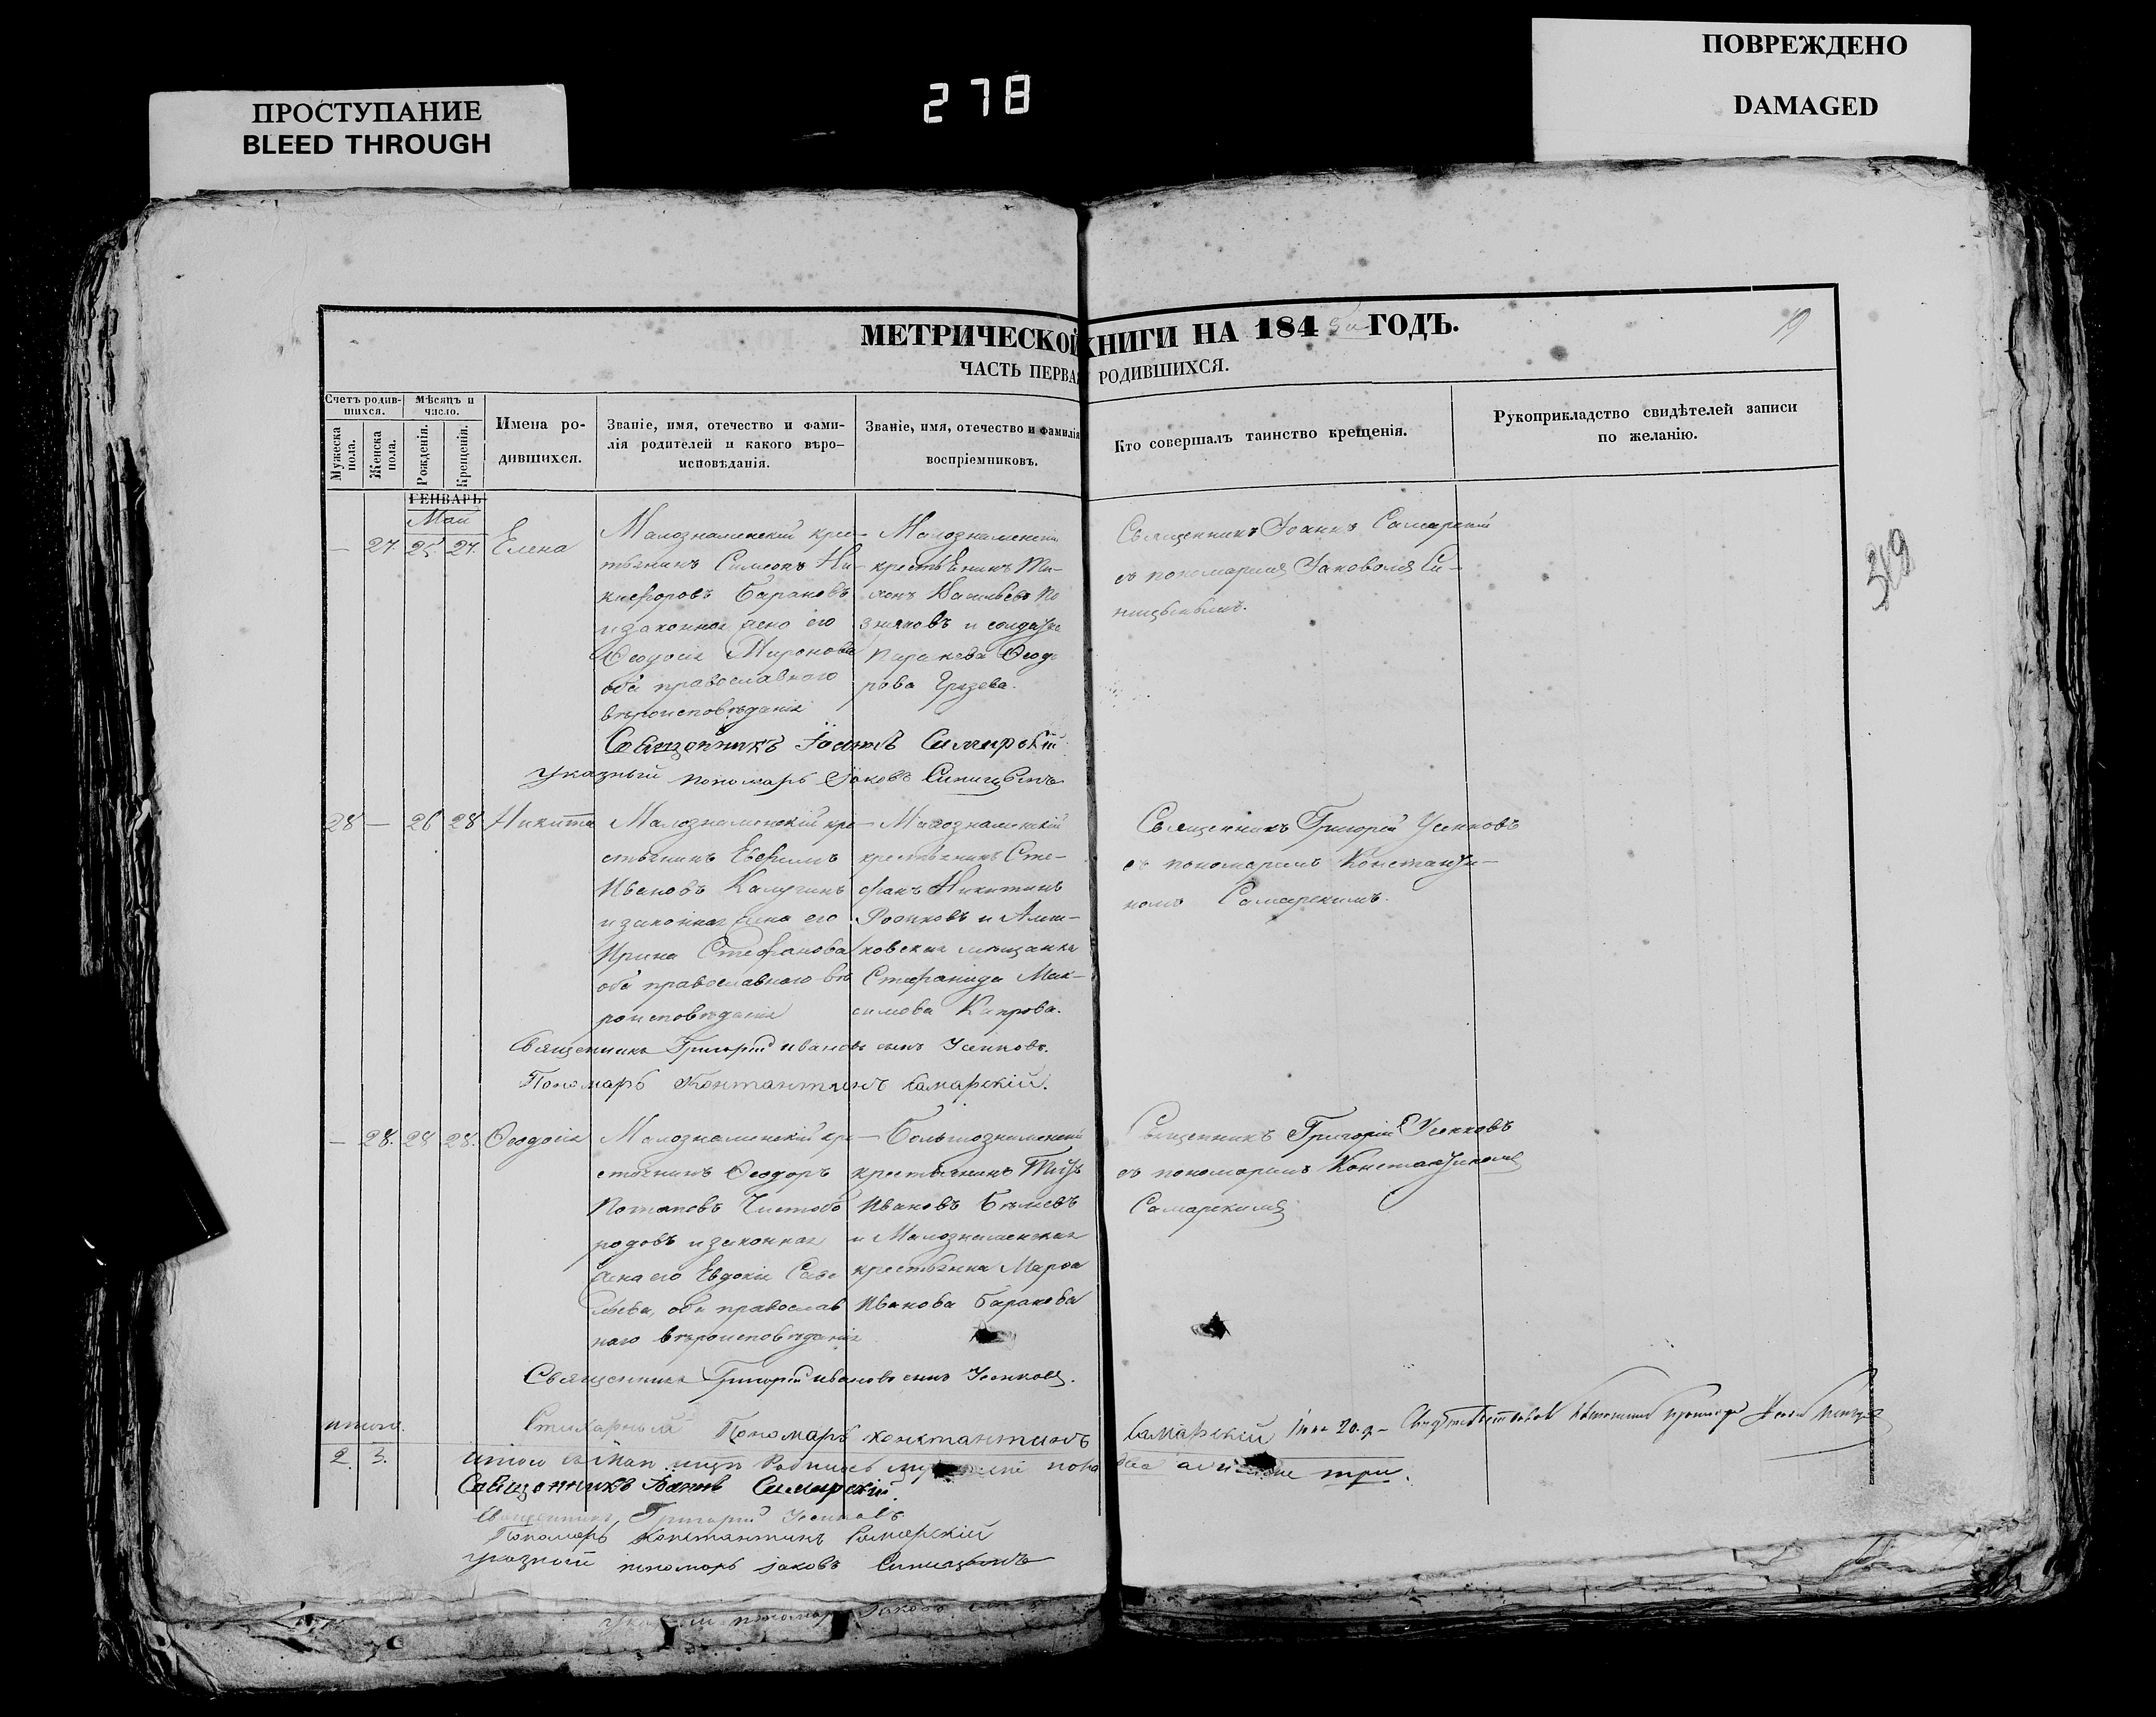 ПРОСТУПАНИЕ
BLEED THROUGH
278
ПОВРЕЖДЕНО
DAMAGED
МЕТРИЧЕСКОЙ КНИГИ НА 184 ГОДЪ.
ЧАСТЬ ПЕРВАЯ РОДИВШИХСЯ.
19
319
Счетъ родив-
шихся.
Мужеска
пола.
Женска
пола.
Мѣсяцъ и
число.
Рожденія.
Крещенія.
Имена ро-
дившихся.
Званіе, имя, отечество и фами-
лія родителей и какого вѣро-
исповѣданія.
Званіе, имя, отечество и фамилія
воспріемниковъ.
Кто совершалъ таинство крещенія.
Рукоприкладство свидѣтелей записи
по желанію.
ГЕНВАРЬ
Май
— 27. 25 27. Елена
Малознаменскій кре-
стьянинъ Симеонъ Ни-
кифоровъ Барановъ
и законная жена его
Ѳеодосія Миронова
оба православного
вѣроисповѣданія
Малознаменскій
крестьянинъ Ти-
Васильевъ По
зняковъ и солдатка
Параскева Ѳеодо
рова Грязева.
Священникъ Іоаннъ Самарскій
съ пономаремъ Іаковомъ Си-
ницынымъ.
Священникъ Іоаннъ Самарскій
указный пономарь Іаковъ Синицынъ
28 — 26 28 Никита
Малознаменскій кре-
стьянинъ Евфимъ
Ивановъ Калугинъ
и законная жена его
Ирина Стефанова
оба православного вѣ
роисповѣданія
Малознаменскій
крестьянинъ Сте-
фанъ Никитинъ
и Алеш-
ковская мѣщанка
Стефанида Мак-
симова Капрова.
Священникъ Григорій Усенковъ
съ пономаремъ Константи-
номъ Самарскимъ.
Священникъ Григорій Ивановъ сынъ Усенковъ.
Пономарь Константинъ Самарскій.
— 28. 28 28. Ѳеодосія
Малознаменскій кре-
стьянинъ Ѳеодоръ
Потаповъ Чистобо
родовъ и законная
жена его Евдокія Саве
льева, оба православ
наго вѣроисповѣданія
Большознаменскій
крестьянинъ Титъ
Ивановъ Бѣляевъ
и Малознаменская
крестьянка Марѳа
Иванова Баранова
Священникъ Григорій Усенковъ
съ пономаремъ Константиномъ
Самарскимъ
Священникъ Григорій Ивановъ сынъ Усенковъ.
Стихарный Пономарь Константинъ Самарскій
итого.
2. 3.
Итого въ Маѣ родилось пола два а женска три.
Священникъ Іоаннъ Самарскій
Священникъ Григорій Усенковъ
Пономарь Константинъ Самарскій
указный пономарь Іаковъ Синицынъ